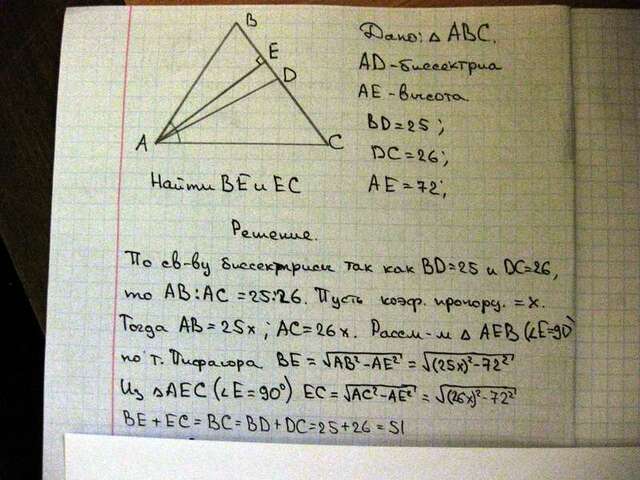 B
E
D
A
C
Дано: △ ABC.
AD - биссектриа
AE - высота.
BD = 25 ;
DC = 26;
AE = 72;
Найти BE и EC
Решение.
По св-ву биссектрисы так как BD = 25 и DC = 26,
то AB : AC = 25:26. Пусть коэф. пропорц. = x.
Тогда AB = 25x ; AC = 26x. Рассм-м △ AEB (∠E=90°
по т. Пифагора BE = √AB² - AE² = √(25x)² - 72²
Из △AEC (∠E = 90°) EC = √AC² - AE² = √(26x)² - 72²
BE + EC = BC = BD + DC = 25 + 26 = 51